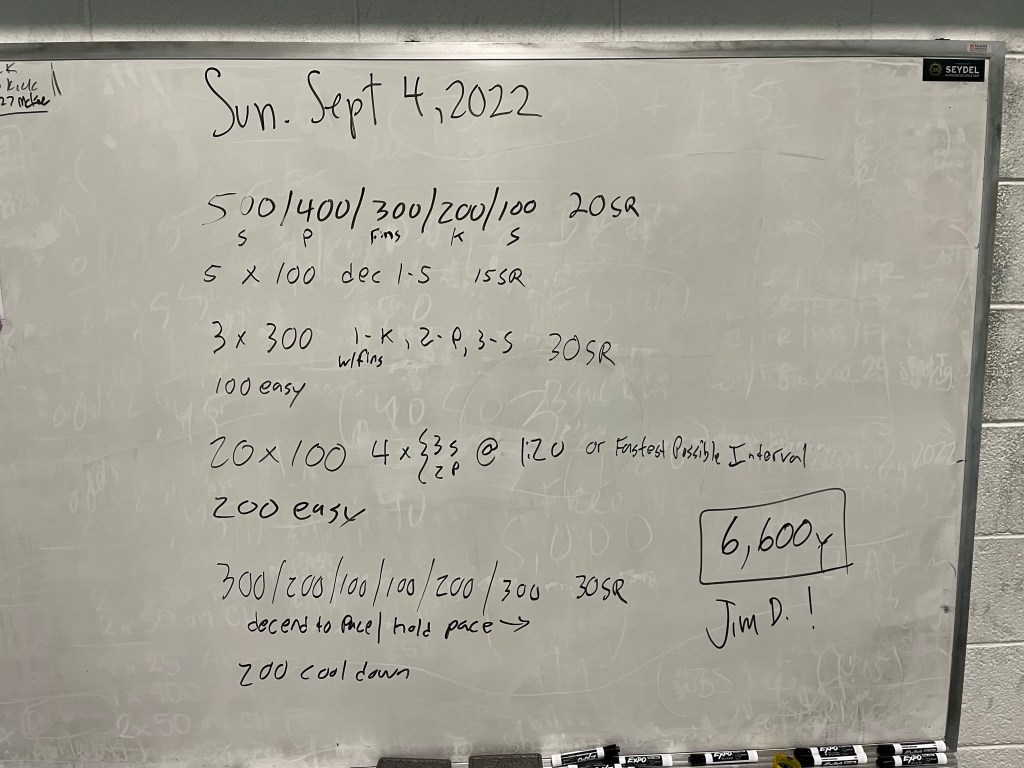 Kick
27 mcKee
SEYDEL
Sun. Sept 4, 2022
500/400/300/200/100 20SR
S P Fins K S
5 x 100 dec 1-5 15SR
3 x 300 1-K, 2-P, 3-S 30SR
w/fins
100 easy
20 x 100 4 x { 3S @ 1:20 or Fastest Possible Interval
2P
200 easy
6,600y
300/200/100/100/200/300 30SR
decend to Pace/ hold pace →
Jim D. !
200 cool down
EXPO EXPO EXPO EXPO EXPO